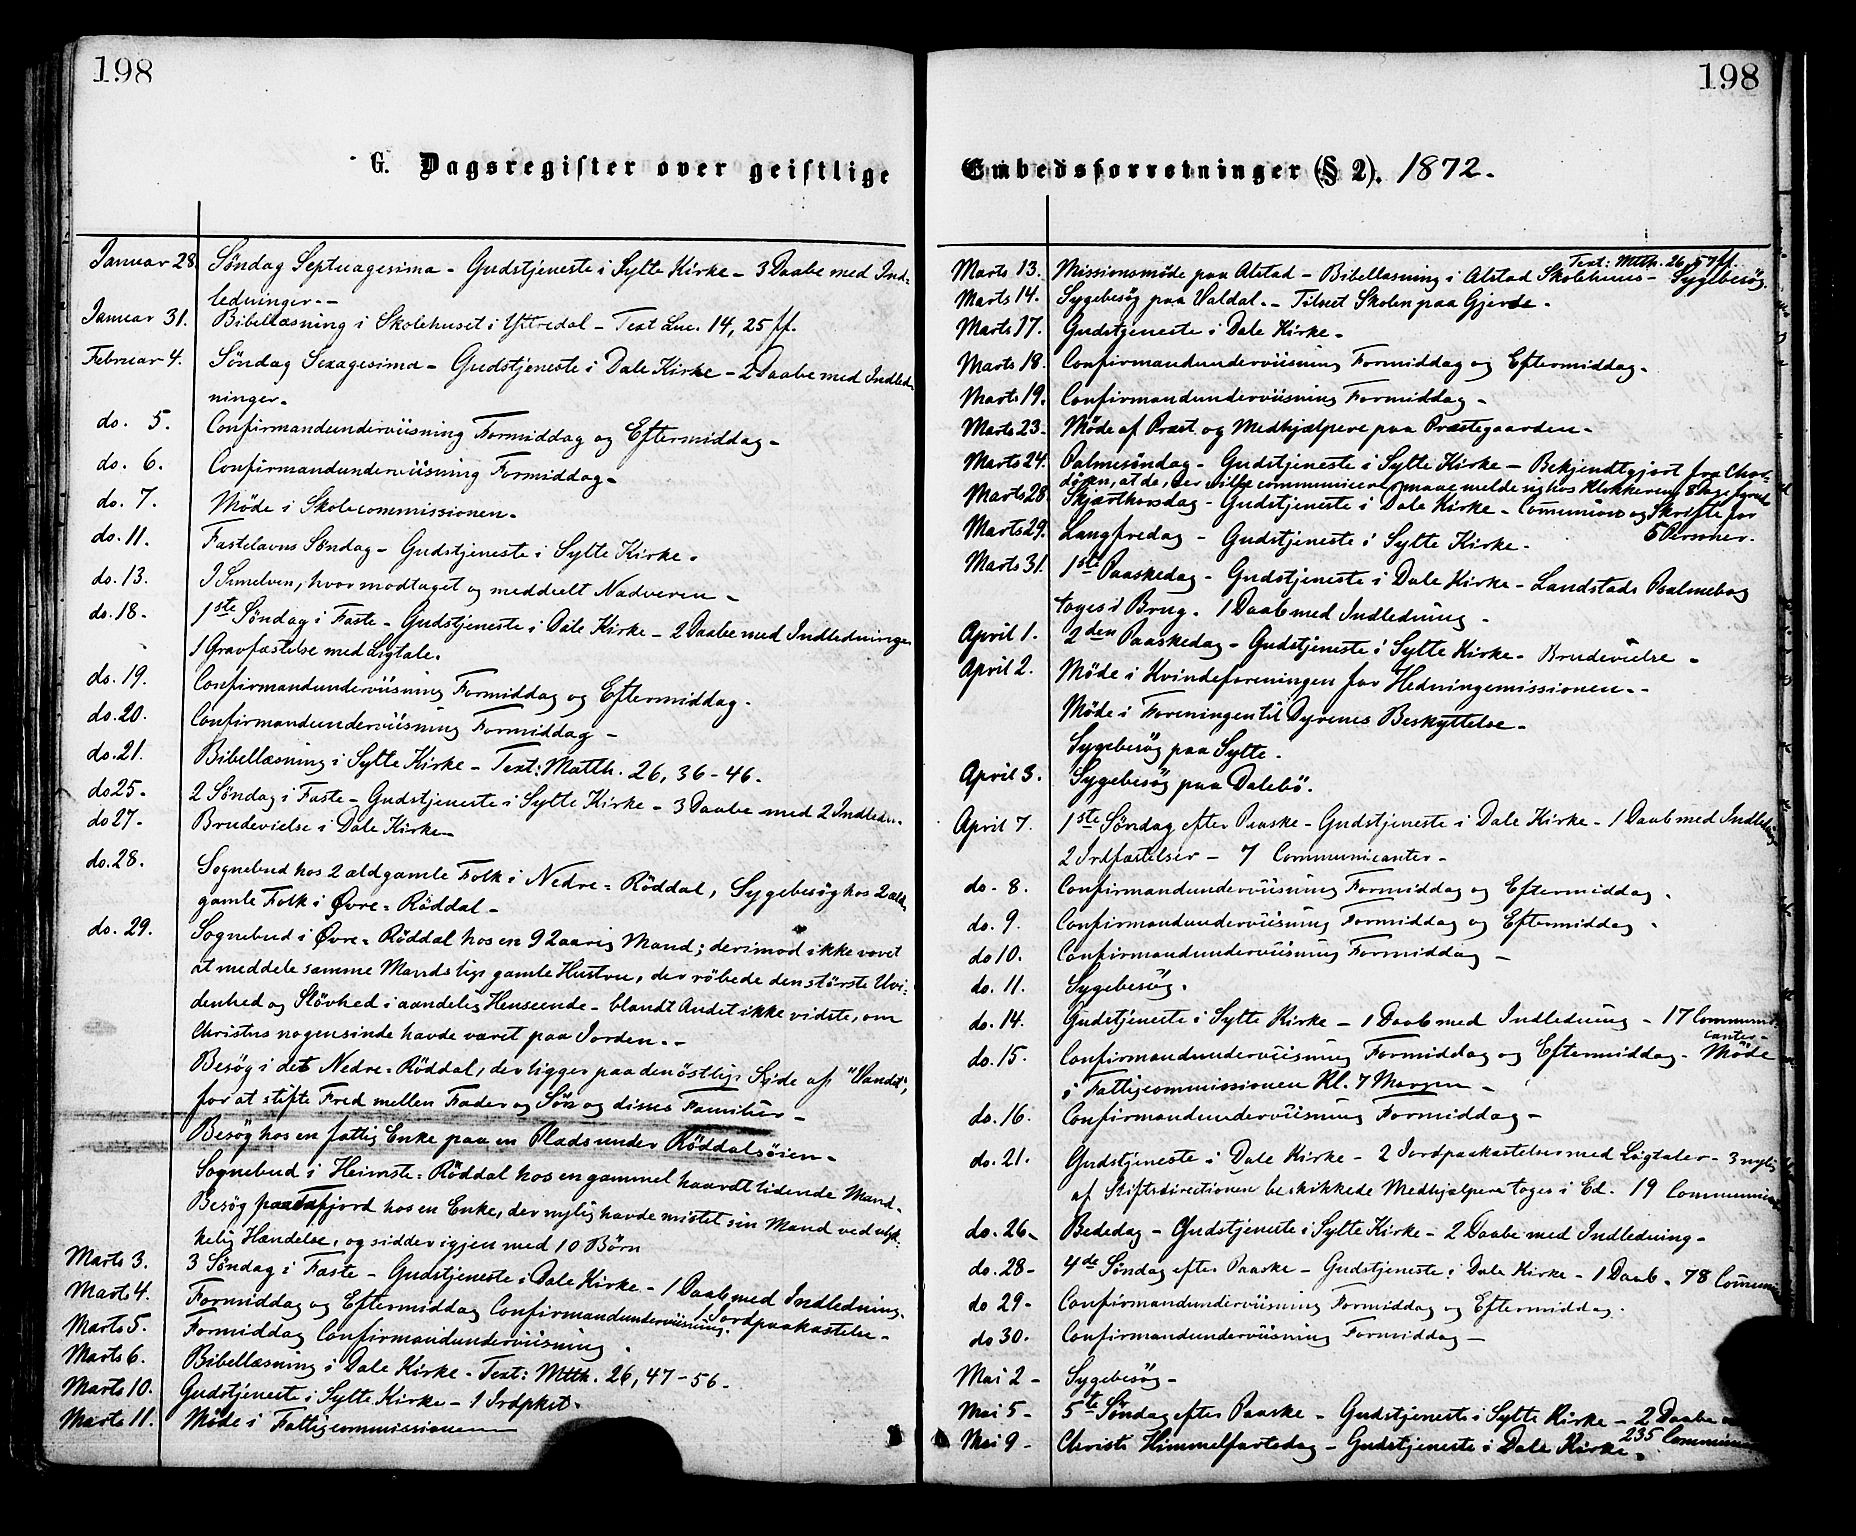 198
G. Dagsregister over geistlige
Januar 28. Söndag Septuagesima - Gudstjeneste i Sylte Kirke - 3 Daabe med Ind-
ledninger. -
Januar 31. Bibellæsning i Skolehuset i Yttredal - Text Luc. 14, 25 ff.
Februar 4. Söndag Sexagesima - Gudstjeneste i Dale Kirke - 2 Daabe med Indled-
ninger.
do. 5. Confirmandunderviisning Formiddag og Eftermiddag -
do. 6. Confirmandunderviisning Formiddag -
do. 7. Möde i Skolecommissionen.
do. 11. Fastelavns Söndag - Gudstjeneste i Sylte Kirke.
do. 13. I hvor modtaget og meddeelt Nadveren -
do. 18. 1ste Söndag i Faste - Gudstjeneste i Dale Kirke - 2 Daabe med Indledninger
1 Gravfæstelse med Ligtale.
do. 19. Confirmandunderviisning Formiddag og Eftermiddag.
do. 20. Confirmandunderviisning Formiddag -
do. 21. Bibellæsning i Sylte Kirke - Text: Matth. 26, 36-46.
do 25. 2 Söndag i Faste - Gudstjeneste i Sylte Kirke - 3 Daabe med 2 Indledn.
do 27. Brudevielse i Dale Kirke -
do. 28. Sognebud hos 2 ældgamle Folk i Nedre-Röddal, Sygebesög hos 2 æld-
gamle Folk i Øvre-Röddal -
do. 29. Sognebud i Øvre-Röddal hos en 92aarig Mand; derimod ikke voret
at meddele samme Mands lige gamle Hustru, der röbede den störste Uvi-
denhed og Slövhed i aandelig Henseende - blandt Andet ikke vidste, om
Christus nogensinde havde været paa Jorden. -
Besög i det Nedre-Röddal, der ligger paa den östlige Side af "Vandet",
for at stifte Fred mellen Fader og Sön og disses Familier -
Besög hos en fattig Enke paa en Plads under Röddalsöien -
Sognebud i Heimste-Röddal hos en gammel haardt lidende Mand -
Besög paa Tafjord hos en Enke, der nylig havde mistet sin Mand ved ulyk-
kelig Hændelse, og sidder igjen med 10 Börn
Marts 3. 3 Söndag i Faste - Gudstjeneste i Dale Kirke - 1 Daab med Indledning.
1 Jordpaakastelse -
Marts 4. Formiddag og Eftermiddag Confirmandunderviisning.
Marts 5. Formiddag Confirmandunderviisning.
Marts 6. Bibellæsning i Dale Kirke - Text: Mtth. 26, 47-56.
Marts 10. Gudstjeneste i Sylte Kirke - 1 Jrdpkst.
Marts 11. Möde i Fattigcommissionen
198
Embedsforretninger (§ 2). 1872.
Text: Mtth. 26, 57 ff.
Marts 13. Missionsmöde paa Alstad - Bibellæsning i Alstad Skolehuus - Sygebesög.
Marts 14. Sygebesög paa Valdal. - Tilseet Skolen paa Gjerde.
Marts 17. Gudstjeneste i Dale Kirke -
Marts 18. Confirmandunderviisning Formiddag og Eftermiddag.
Marts 19. Confirmandunderviisning Formiddag -
Marts 23. Möde af Præst og Medhjælpere paa Præstegaarden -
Marts 24. Palmesöndag - Gudstjeneste i Sylte Kirke - Bekjendtgjort fra Chor-
dören, at de, der ville communicere, maae melde sig hos Klokkeren 8 Dage forud
Marts 28. Skjærthorsdag - Gudstjeneste i Dale Kirke - Communion og Skrifte for
5 Personer.
Marts 29. Langfredag - Gudstjeneste i Sylte Kirke.
Marts 31. 1ste Paaskedag - Gudstjeneste i Dale Kirke - Landstads Psalmebog
toges i Brug. 1 Daab med Indledning.
April 1. 2den Paaskedag - Gudstjeneste i Sylte Kirke - Brudevielse -
April 2. Möde i Kvindeforeningen for Hedningemissionen. -
Möde i Foreningen til Dyrenes Beskyttelse -
Sygebesög paa Sylte.
April 3. Sygebesög paa Dalebö.
April 7. 1ste Söndag efter Paaske - Gudstjeneste i Dale Kirke - 1 Daab med Indledning
2 Jrdfæstelser - 7 Communicanter -
do. 8. Confirmandunderviisning Formiddag og Eftermiddag.
do. 9. Confirmandunderviisning Formiddag og Eftermiddag.
do 10. Confirmandunderviisning Formiddag -
do. 11. Sygebesög.
do. 14. Gudstjeneste i Sylte Kirke - 1 Daab med Indledning - 17 Communi-
canter -
do. 15. Confirmandunderviisning Formiddag og Eftermiddag - Möde
i Fattigcommissionen Kl. 7 Morgen -
do. 16. Confirmandunderviisning Formiddag -
do. 21. Gudstjeneste i Dale Kirke - 2 Jordpaakastelser med Ligtaler - 3 nylig
af Stiftsdirectionen beskikkede Medhjælpere toges i Ed. 19 Communicant
do. 26. Bededag - Gudstjeneste i Sylte Kirke - 2 Daabe med Indledning -
do. 28. 4de Söndag efter Paaske - Gudstjeneste i Dale Kirke - 1 Daab. 78 Commun
do 29. Confirmandunderviisning Formiddag og Eftermiddag.
do 30. Confirmandunderviisning Formiddag -
Mai 2 - Sygebesög -
Mai 5 - 5te Söndag efter Paaske - Gudstjeneste i Sylte Kirke - 2 Daabe
235 Commun
Mai 9 - Christi Himmelfartsdag - Gudstjeneste i Dale Kirke.